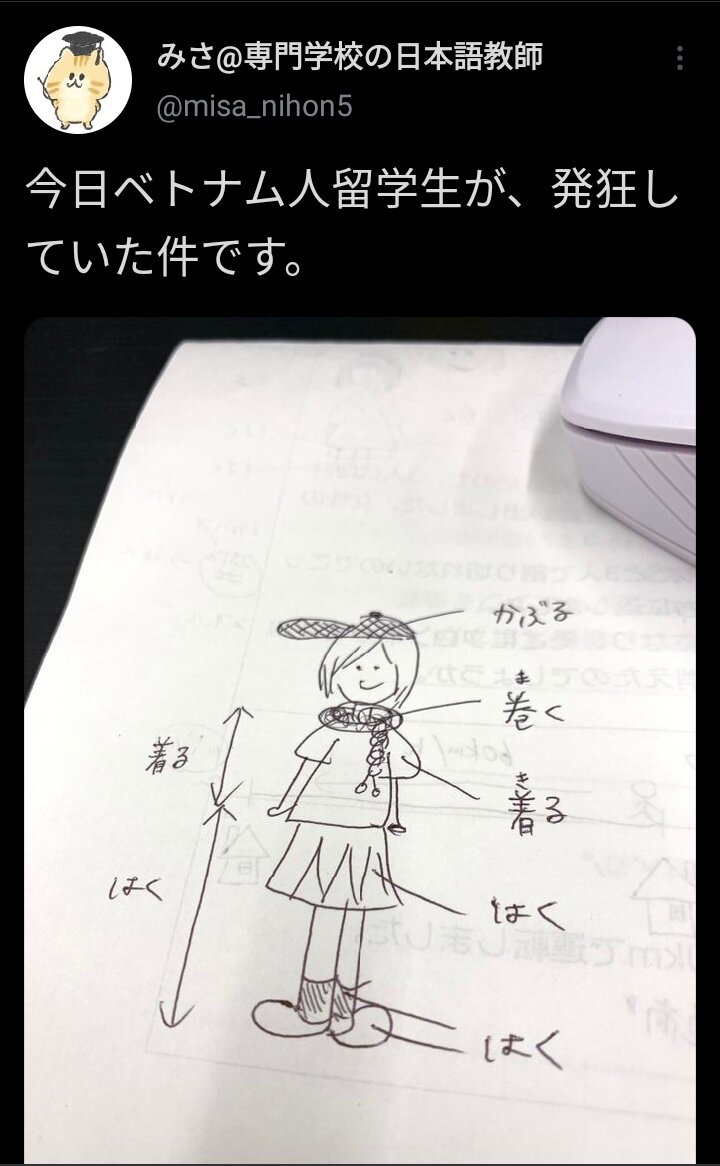 みさ@専門学校の日本語教師
@misa_nihon5
今日ベトナム人留学生が、発狂し
ていた件です。
かぶる
ま
巻く
着る
き
着る
はく
はく
はく